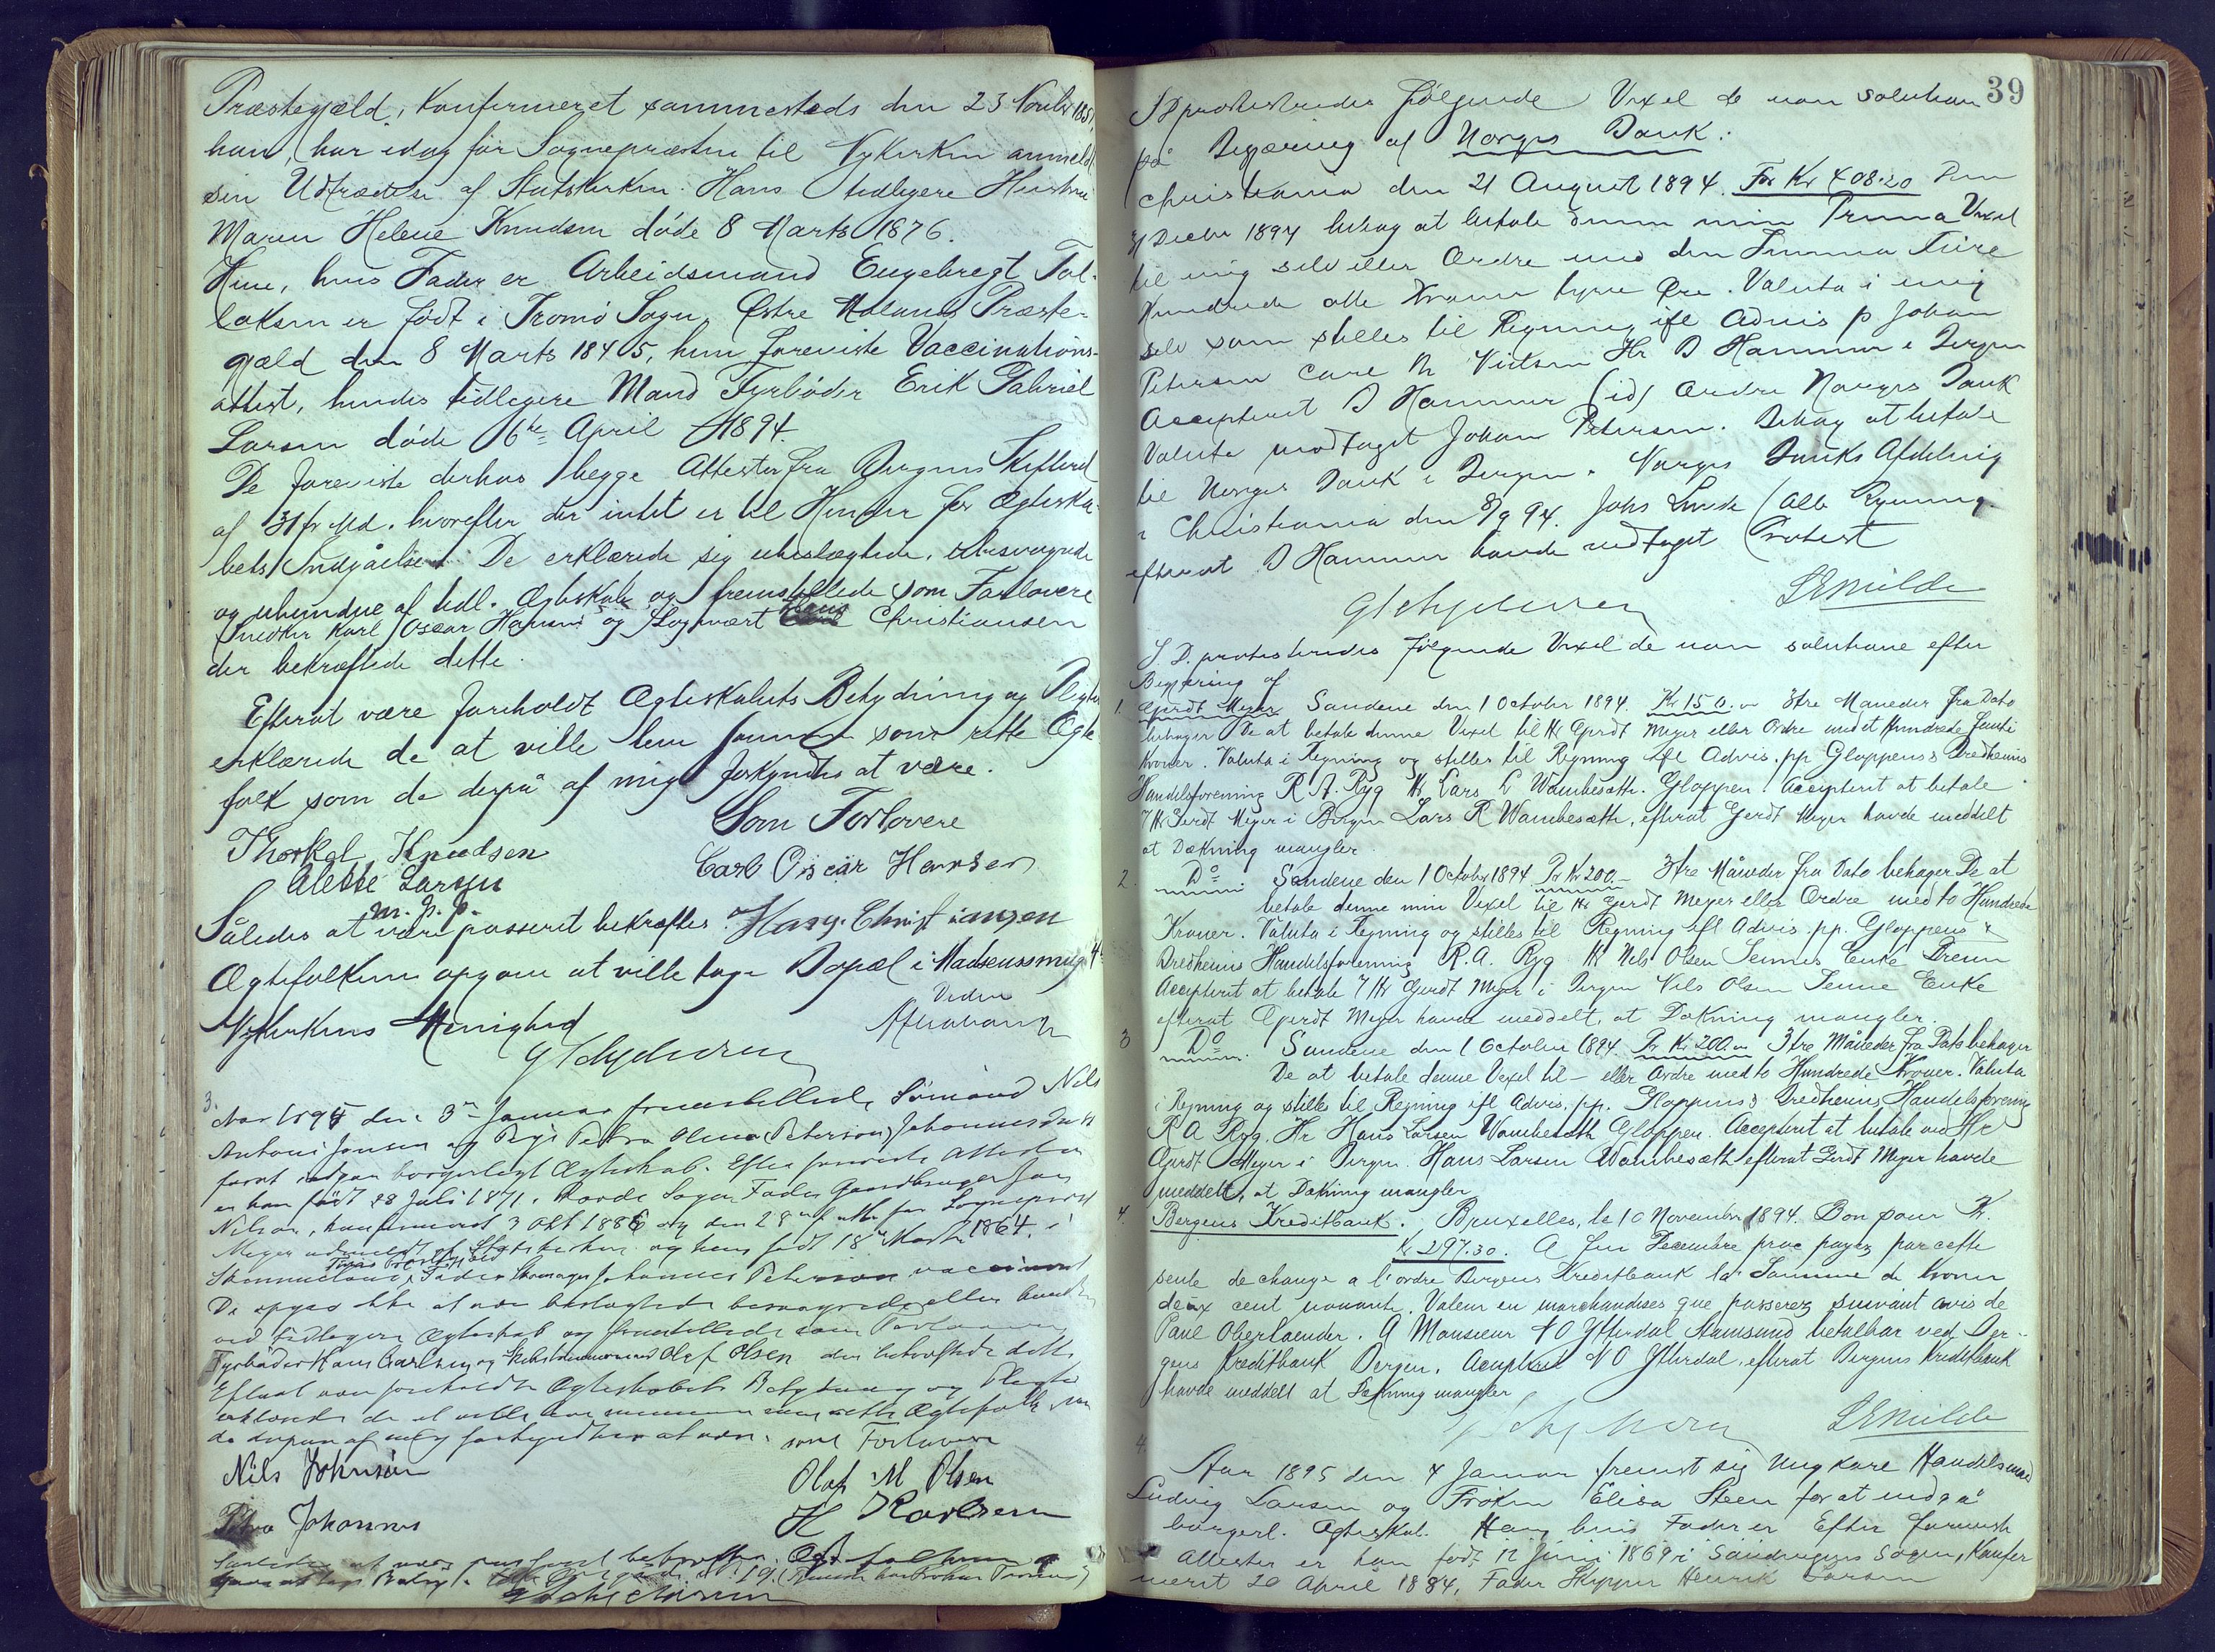 Præstegjæld, Konfirmeret sammesteds den 23 Novbr 1851.
han, har idag for Sognepræsten til Nykirken anmeldt
sin Udtrædelse af Statskirken. Hans tidligere Hustru
Maren Helene Knudsen døde 8 Marts 1876.
Hun, hvis Fader er Arbeidsmand Engebregt Tol-
laksen er født i Tromø Sogn, Østre Moland Præste-
gjæld den 8 Marts 1845, hun foreviste Vaccinations-
attest, hendes tidligere Mand Fyrbøder Erik Gabriel
Larsen døde 6te April 1894.
De foreviste derhos begge Attester fra Bergens Skifteret
af 31 f. Md. hvorefter der intet er til Hinder for Ægteska-
bets Indgåelse. De erklærede sig ubeslægtede, ubesvogrede
og uhindrede af tidl. Ægteskab og fremstillede som Forlovere
Snedker Karl Oscar Hansen og Hans Christiansen
der bekræftede dette.
Efterat være foreholdt Ægteskabets Betydning og Pligter
erklærede de at ville leve sammen som rette Ægte-
folk som de derpå af mig forkyndtes at være.
Som Forlovere
Thorkel Knudsen
Carl Oscar Hansen
Alette Larsen
m. p. p.
Således at være passeret bekræftes. Hans Christiansen
Ægtefolkene opgave at ville tage Bopæl i Madsensmug 4
Nykirkens Menighed
3.
Aar 1895 den 3 Januar fremstillede Sømand Nils
Antoni Jonsen og Pige Petra Olina (Peterson) Johannesdatt
forat indgaa borgerligt Ægteskab. Efter foreviste Attester
er han født 28 Juli 1871, Sogn, Fader Gaardbruger Jon
Nilson, konfirmeret 3 Okt 1886 og den 28 for Sognepræst
Meyer udmeldt af Statskirken og hun født 18 Marts 1864 i
Fader Johannes Peterson vaccineret
De opgav ikke at være beslægtede besvogrede eller bundne
ved tidligere Ægteskab og fremstillede som Forlovere
Fyrbøder Hans Carlsen og Olaf Olsen der bekræftede dette
Efterat være foreholdt Ægteskabets Betydning og Pligter
erklærede de at ville leve sammen som rette Ægtefolk som
de derpaa af mig forkyndtes at være. som Forlovere
Nils Johnsen
Olaf M Olsen
Petra Johannes
H Karlsen
Saaledes at være passeret bekræftes.
39
S D protesteredes følgende Vexel de non solutione
på Begjæring af Norges Bank:
Christiania den 21 August 1894. For Kr 408.20 Den
31 Decbr 1894 behag at betale denne min Prima Vexel
til mig selv eller Ordre med den Summa Fire
Hundrede otte Kroner tyve Øre. Valuta i mig
selv som stilles til Regning ifl Advis p Johan
Petersen Hr D Hammer i Bergen
Accepteret D Hammer (id) Ordre Norges Bank
Valuta modtaget Johan Petersen. Behag at betale
til Norges Bank i Bergen. Norges Banks Afdeling
i Christiania den 8/9 94. Johs Lunde
efterat D Hammer havde vedtaget Protest
S E Milde
S. D. protesteredes følgende Vexel de non solutione efter
Begjæring af
1. Gerdt Meyer Sandene den 1 October 1894. Kr 150. 3 tre Maneder fra Dato
behager De at betale denne Vexel til Hr Gerdt Meyer eller Ordre med et Hundrede femti
Kroner. Valuta i Regning og stilles til Regning ifl Advis. pp Gloppens & Bredheims
Handelsforening R. A. Ryg Hr Lars L Wambesæth. Gloppen. Accepteret at betale
7 Hr Gerdt Meyer i Bergen Lars R Wambesæth, efterat Gerdt Meyer havde meddelt
at Dækning mangler.
2. Do Sandene den 1 October 1894 Pr Kr 200.- 3 tre Måneder fra Dato behager De at
betale denne min Vexel til Hr Gerdt Meyer eller Ordre med to Hundrede
Kroner. Valuta i Regning og stilles til Regning ifl Advis. pp. Gloppens &
Bredheims Handelsforening R. A. Ryg. Hr Nils Olsen Enke
Accepteret at betale 7 Hr Gerdt Meyer i Bergen Nils Olsen Enke
efterat Gerdt Meyer havde meddelt, at Dækning mangler.
3 Do Sandene den 1 October 1894. Pr Kr 200.- 3 tre Måneder fra Dato behager
De at betale denne Vexel til - eller Ordre med to Hundrede Kroner. Valuta
i Regning og stilles til Regning ifl Advis. pp. Gloppens & Bredheims Handelsforening
R A Ryg. Hr. Hans Larsen Wambesæth Gloppen. Accepteret at betale ved Hr
Gerdt Meyer i Bergen. Hans Larsen Wambesæth efterat Gerdt Meyer havde
meddelt, at Dækning mangler
4. Bergens Kreditbank. Bruxelles, le 10 November 1894. Bon pour Kr.
Kr 297.30. A fin Decembre prox payez par cette
seule de change a l'ordre Bergens Kreditbank la Somme de Kroner
deux cent nonante. Valeur en marchandises que passerez suivant avis de
Paul Oberlaender. A Monsieur N O Ytterdal Stamsund betalbar ved Ber-
gens Kreditbank Bergen. Accepteret N O Ytterdal, efterat Bergens Kreditbank
havde meddelt at Dækning mangler
S E Milde
4.
Aar 1895 den 4 Januar fremst sig Ungkarl Handelsmand
Ludvig Larsen og Frøken Elisa Steen for at indgå
borgerl. Ægteskab. Han, hvis Fader er Efter foreviste
Attester er han født 12 Juni 1869 i Sogn, Konfir
meret 20 April 1884, Fader Skipper Henrik Larsen